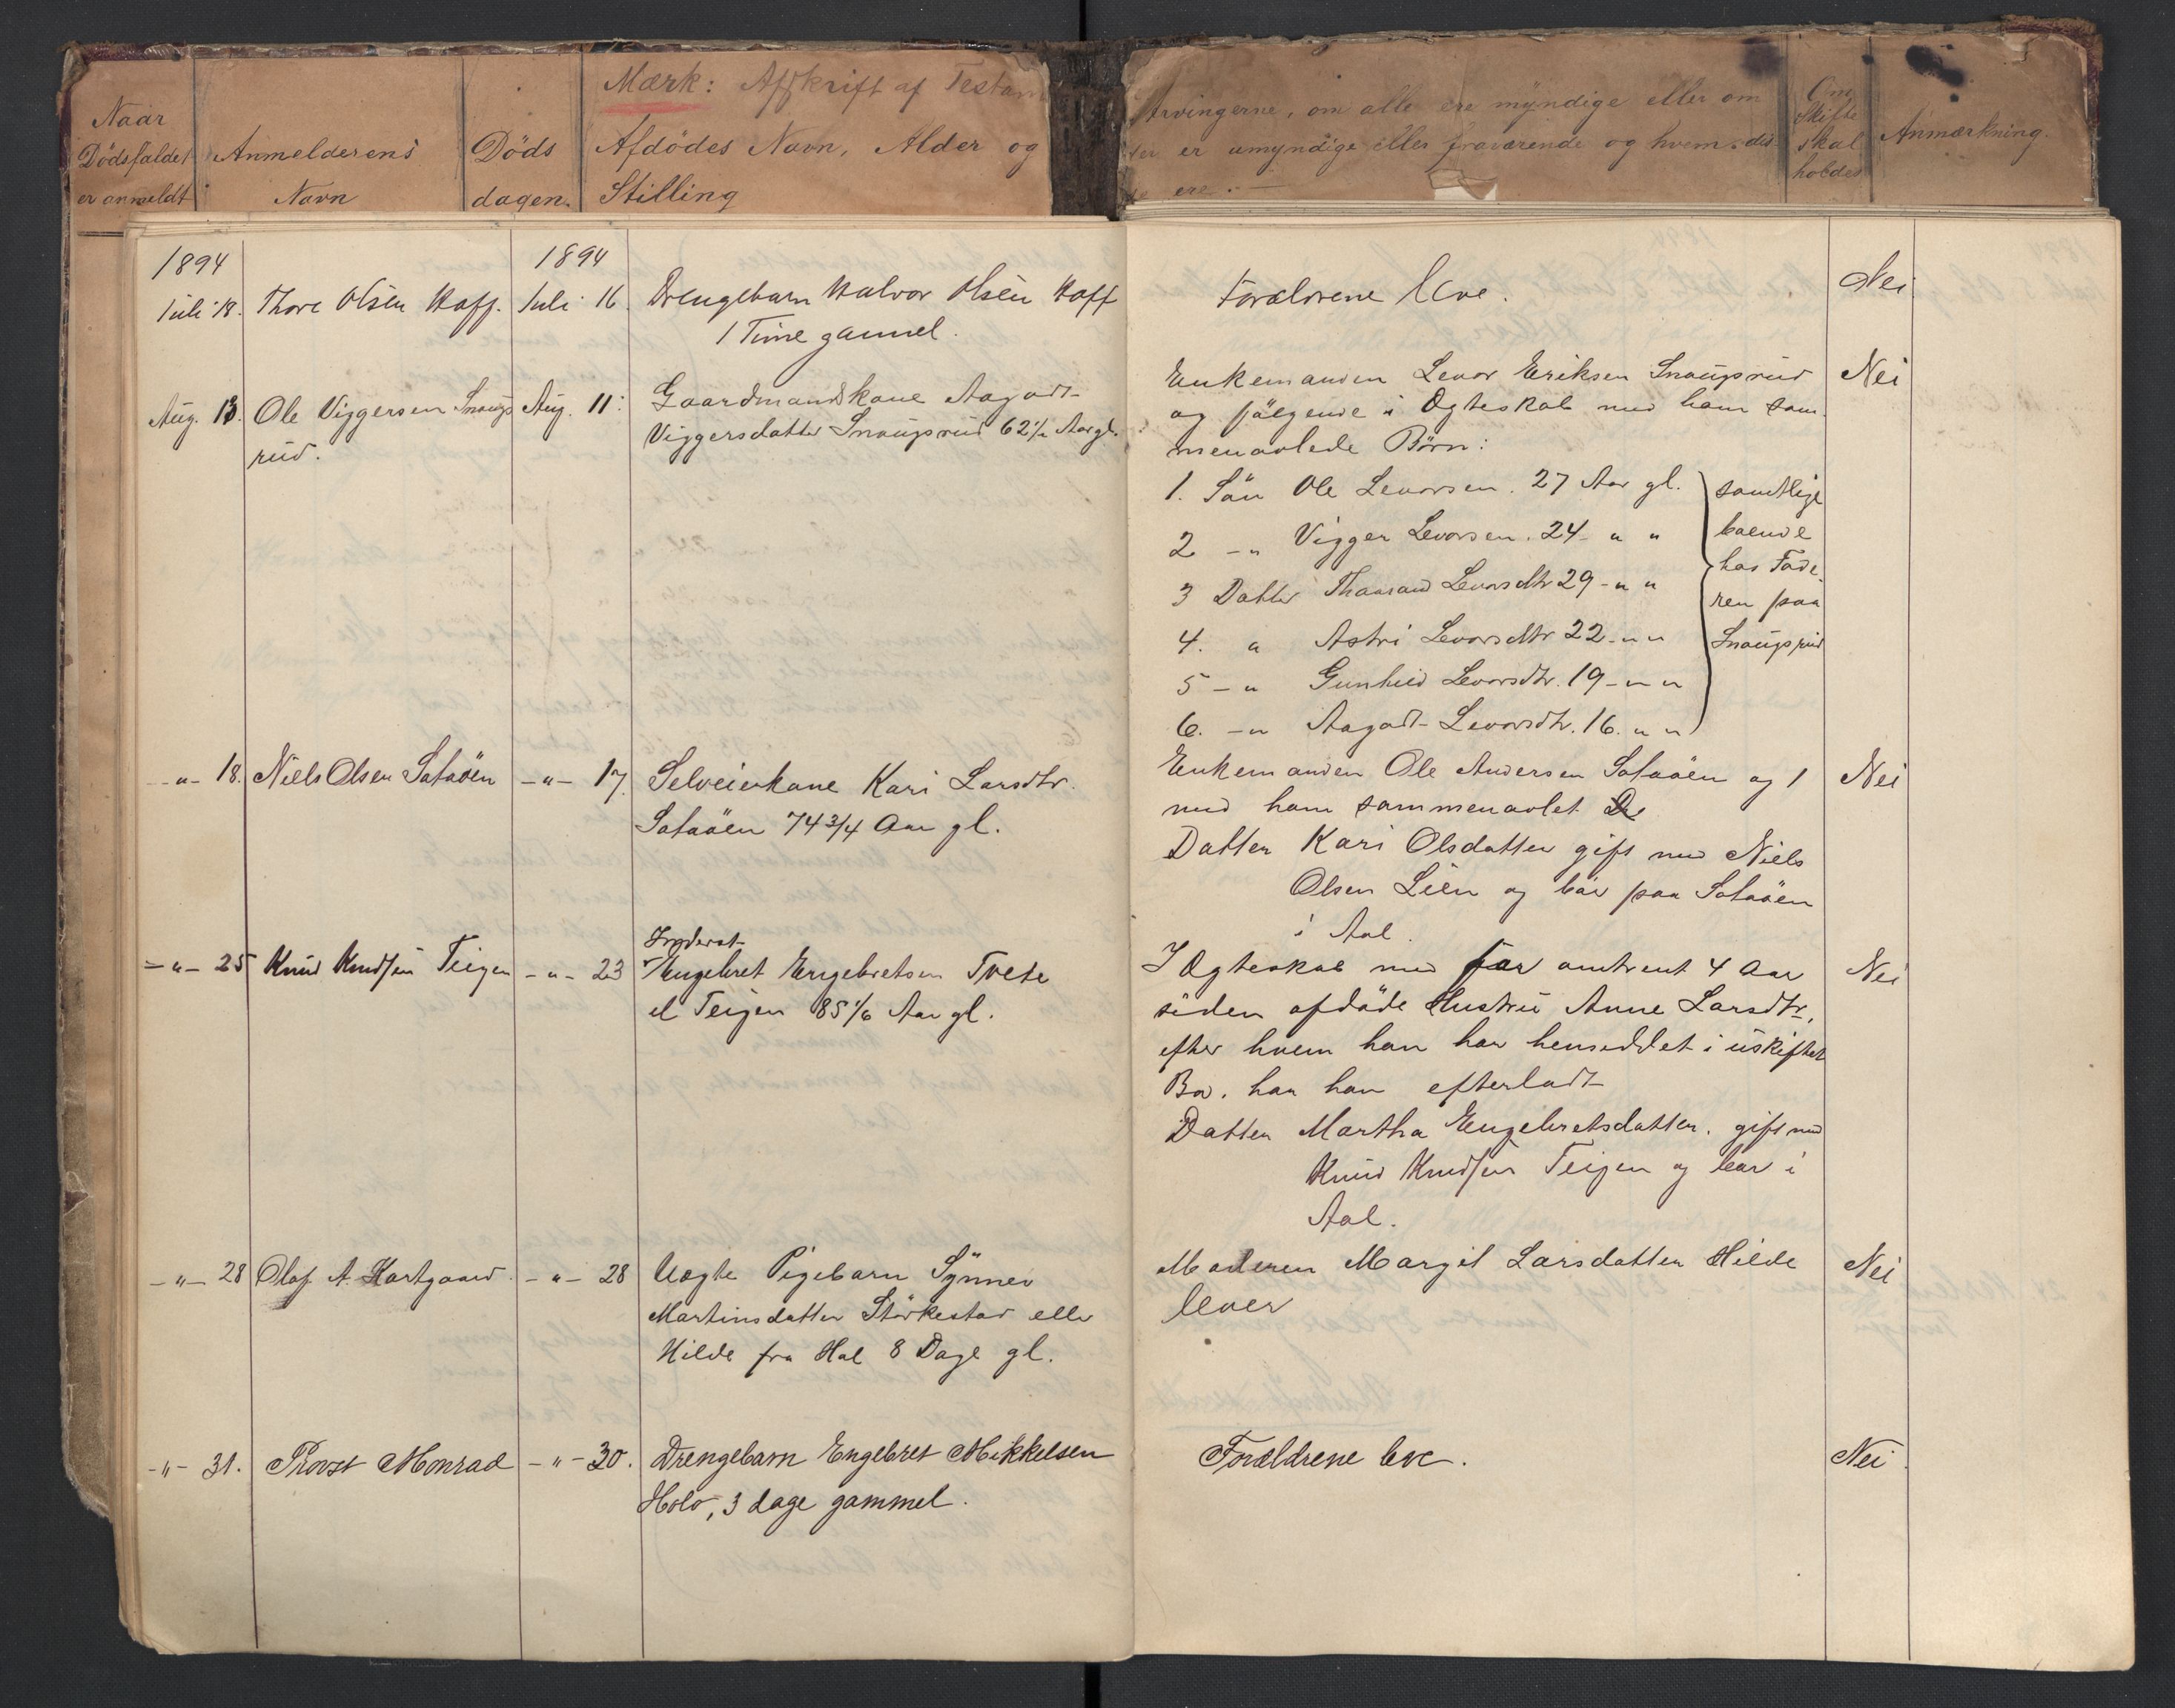 Mærk: Afskrift af Testam
Naar
Dödsfaldet
er anmeldt
Anmelderens
Navn
Döds
dagen.
Afdödes Navn, Alder og
Stilling
Arvingerne, om alle ere myndige eller om
er umyndige eller fraværende og hvem dis
ere.—
Om
Skifte
skal
holdes
Anmærkning.
1894
1894
Juli 18. Thore Olsen Hoff. Juli 16. Drengebarn Halvor Olsen Hoff
1 Time gammel.
Forældrene leve. Nei
Aug. 13. Ole Viggersen Snaugs Aug. 11. Gaardmandskone Aagodt
rud. Viggersdatter Snaugsrud 62½ Aar gl.
Enkemanden Levor Eriksen Snaugsrud Nei
og fölgende i Ægteskab med ham sam-
menavlede Börn:
1. Sön Ole Levorsen. 27 Aar gl.
2 -" Vigger Levorsen. 24 - " "
3 Datter Thaarand Levorsdtr 29 - " "
4. " Astri Levorsdtr 22 - " "
5 - " Gunhild Levorsdtr. 19 - " "
6. - " Aagodt Levorsdtr. 16. " "
samtlige
boende
hos Fade-
ren paa
Snaugsrud
-"- 18. Niels Olsen Sataöen -"- 17. Selveierkone Kari Larsdtr.
Sataöen 74 3/4 Aar gl.
Enkemanden Ole Andersen Sataöen og 1 Nei
med ham sammenavlet
Datter Kari Olsdatter gift med Niels
Olsen Lien og bor paa Sataöen
i Aal.
-"- 25 Knud Knudsen Teigen -"- 23 Inderst
Engebret Engebretsen Tvete
el Teigen 85 1/6 Aar gl.
I Ægteskab med for omtrent 4 Aar Nei
siden afdöde Hustru Anne Larsdtr.,
efter hvem han har henseddet i uskiftet
Bo, har han efterladt
Datter Martha Engebretsdatter, gift med
Knud Knudsen Teigen og bor i
Aal.
-"- 28 Olaf A. Kartgaard. -"- 28 Uægte Pigebarn Synnev
Martinsdatter Störkestad eller
Hilde fra Hol 8 Dage gl.
Moderen Margit Larsdatter Hilde Nei
lever
-"- 31. Provst Monrad -"- 30. Drengebarn Engebret Mikkelsen
Holo, 3 dage gammel.
Forældrene leve. Nei